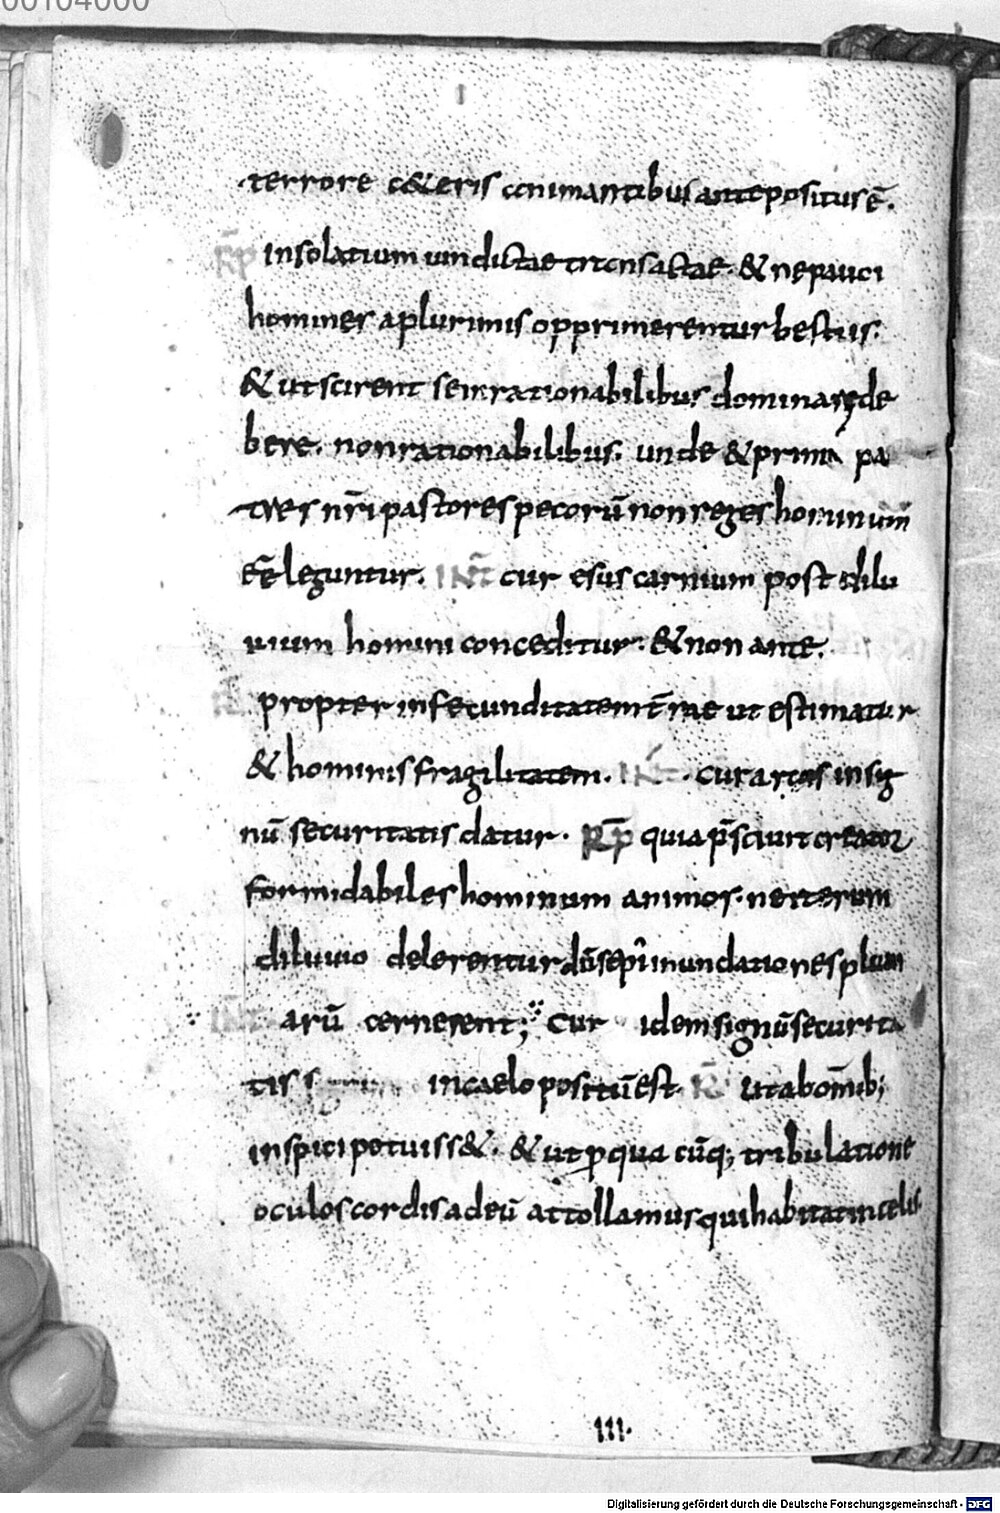 00104000
terrore c&eris animantibus antepositus ē.
R̄p in solatium uindictae transactae. & ne pauci
homines a plurimis opprimerentur bestiis.
& ut scirent se inrationabilibus dominare de
bere. non rationabilibus. unde & primi pa
tres nr̄i pastores pecorū non reges hominum
ēē leguntur. INT̄ cur esus carnium post dilu
uium homini conceditur. & non ante.
R̄ propter infecunditatem t̄rrae ut estimatur
& hominis fragilitatem. INT̄. cur arcus in sig
nū securitatis datur. R̄p quia p̄sciuit creator
formidabiles hominum animos. ne iterum
diluuio delerentur dū sepi inundationes pluui
INT̄ arū cernerent; Cur idem signū securita
tis in caelo positū est. R̄ Ut ab om̄ib;
inspici potuiss&. & ut p̱ quacūq; tribulatione
oculos cordis ad eū attollamus qui habitat in celis.
III.
Digitalisierung gefördert durch die Deutsche Forschungsgemeinschaft - DFG